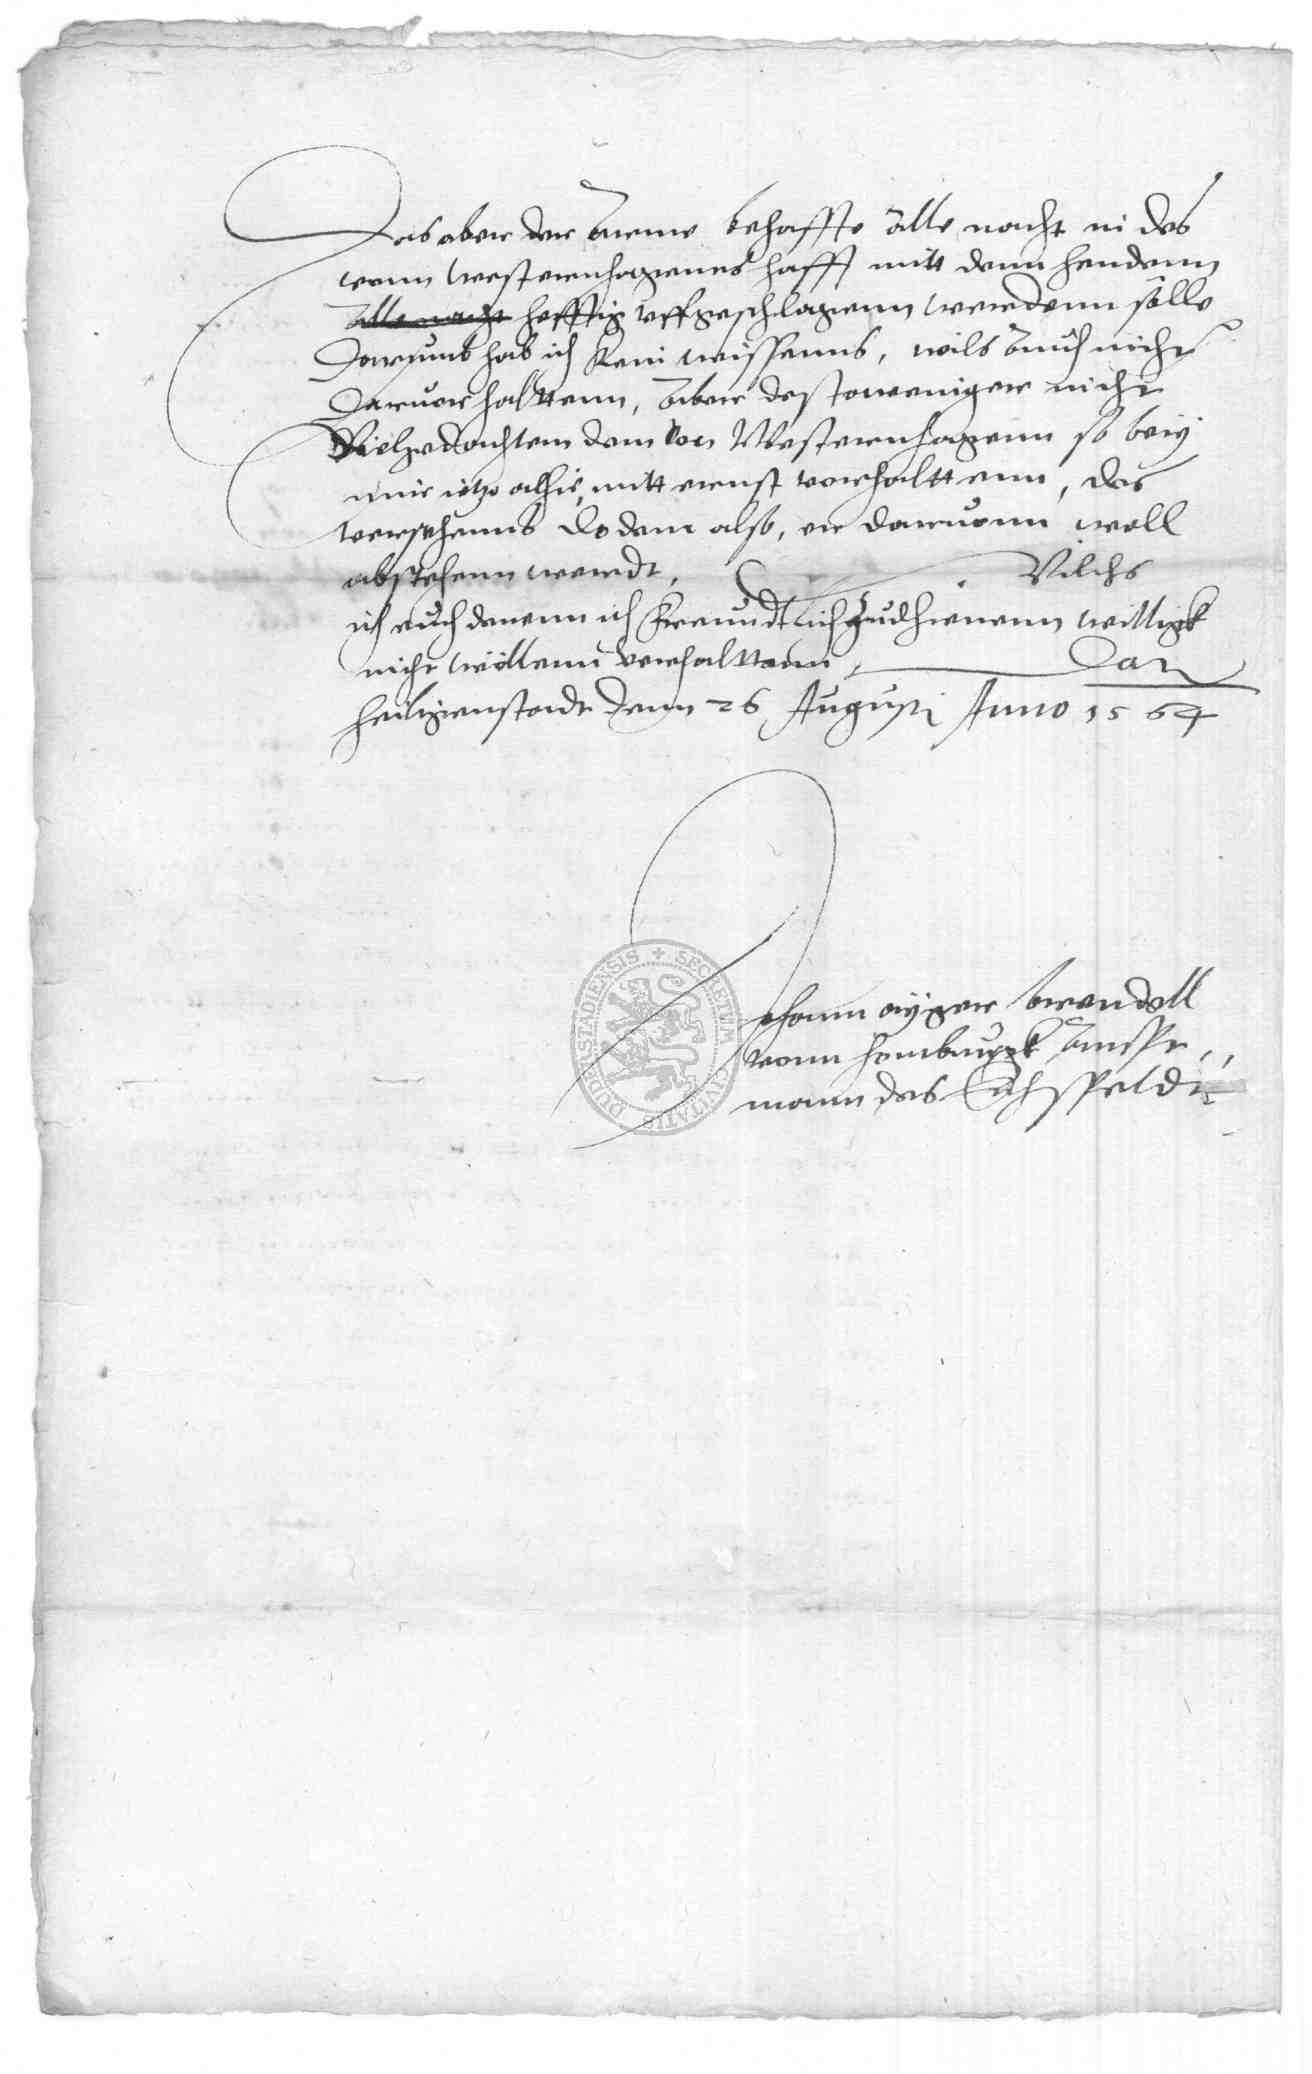 Das aber der Arme behaffte alle nacht in des
vonn Westernhagenns hafft mitt denn hendenn
alle nacht hefftig uffgeschlagenn werdenn solle
Darumb hab ich kein wissenns, wils auch nicht
daruor halttenn, aber destoweniger nicht
Vielgedachtem dem von Westernhagenn so bey
mir itzo alhie, mitt ernst vorhalttenn, das
versehenns do dem also, er daruonn woll
abstehenn werdt, Wilchs
ich euch denenn ich freundtlich zudhienenn willigk
nicht wollenn verhalttenn, Dat
Heiligenstadt denn 26 Augusti Anno 1564
Hann Brendell
vonn Homburgk Ampt,,
mann des Eichsfeldt
SECRETUM CIVITATIS DUDERSTADIENSIS